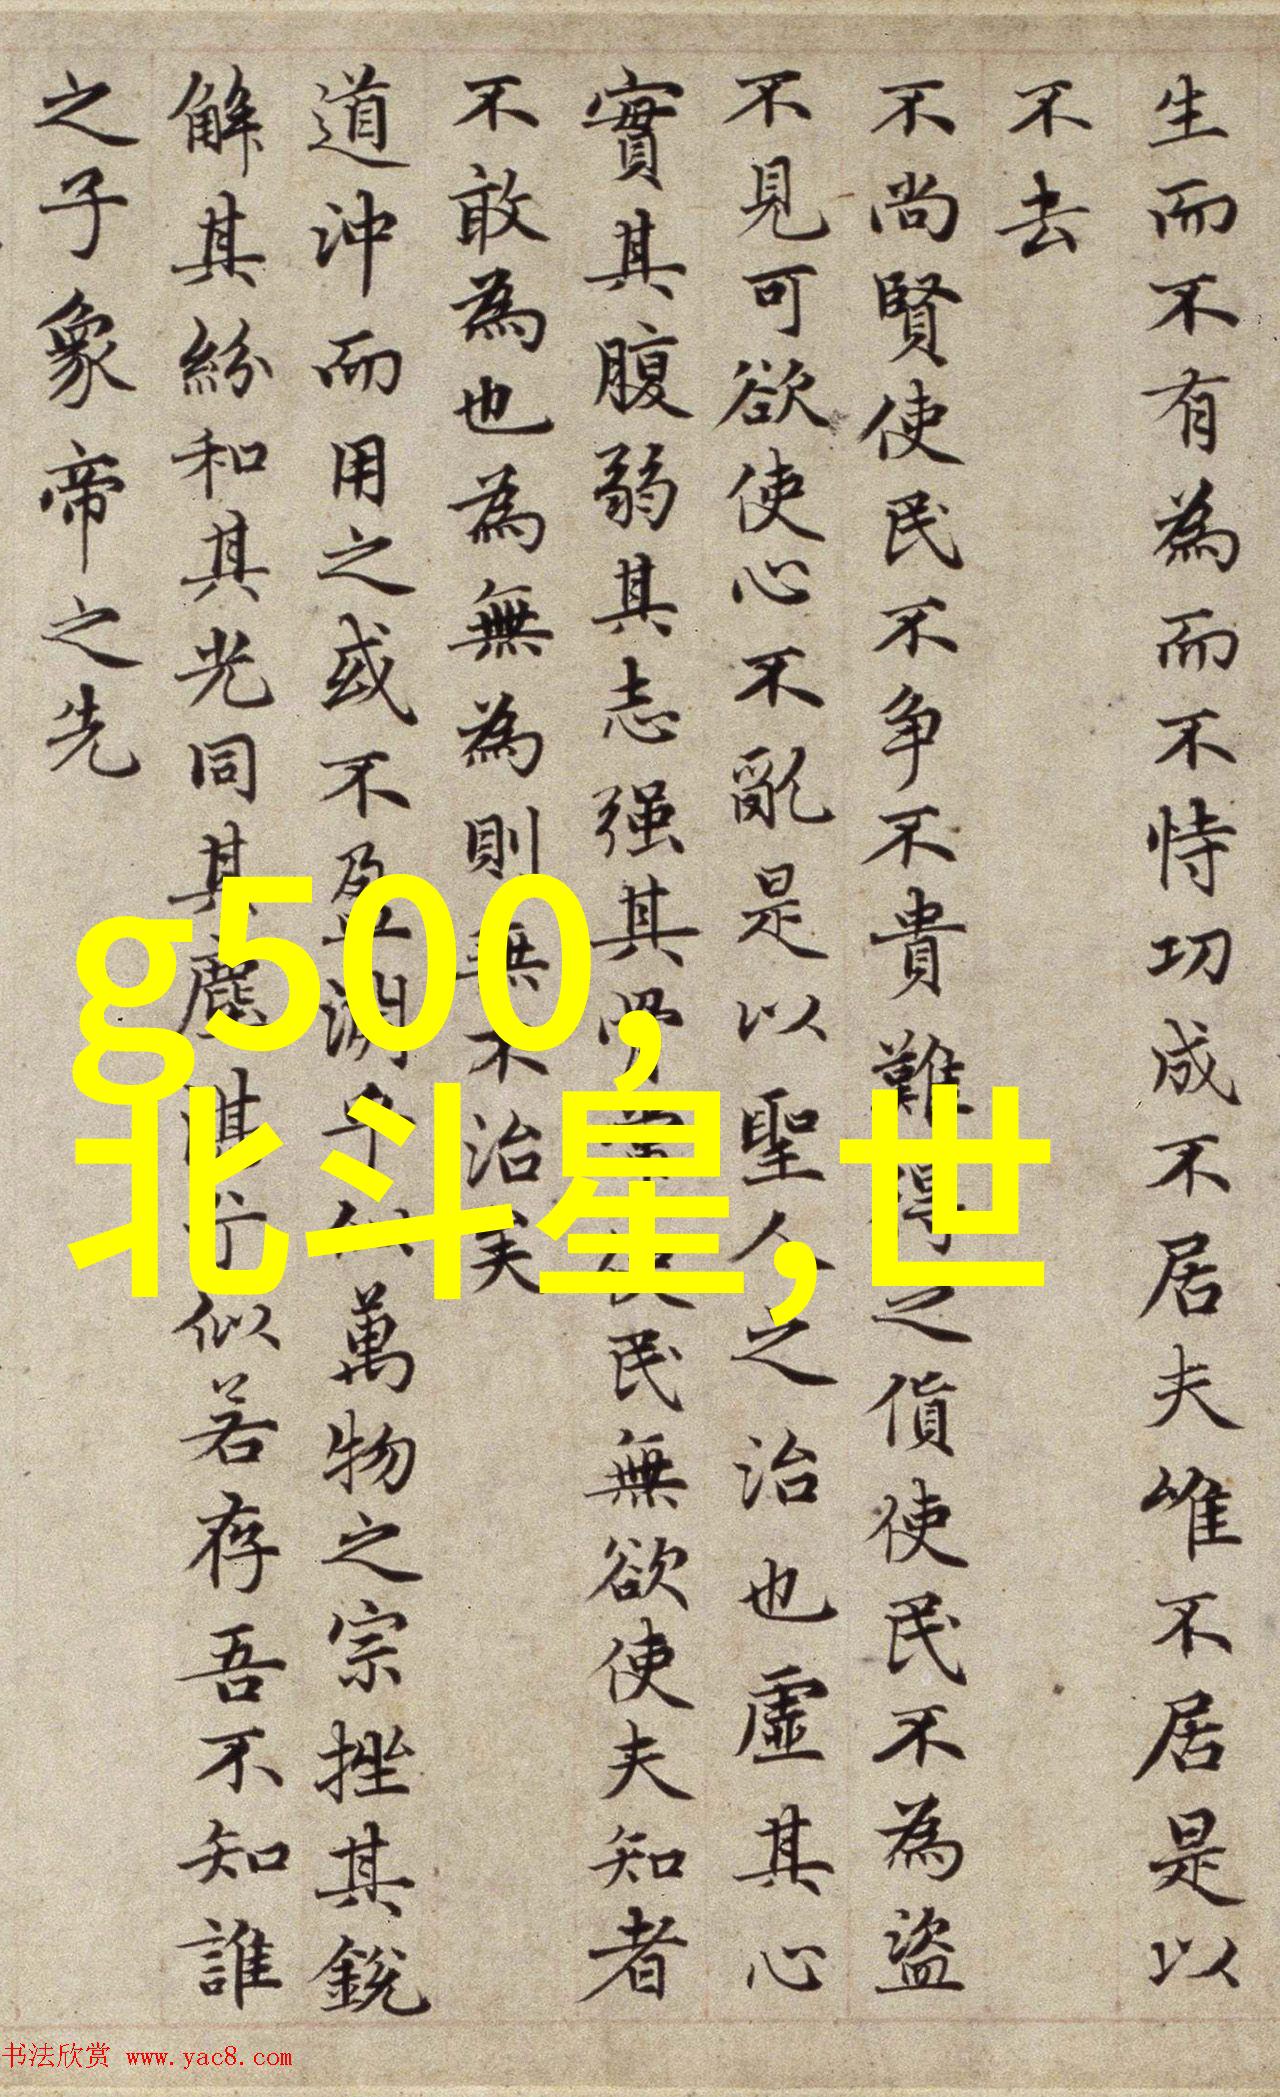 生而不有為而不恃功成不居夫唯不居是以
不去
不尚賢使民不争不貴難得之貨使民不為盜
不見可欲使心不亂是以聖人之治也虛其心
實其腹弱其志强其骨常使民無欲使夫知者
不敢為也為無為則無不治矣
道沖而用之或不盈淵乎似萬物之宗挫其銳
解其紛和其光同其塵湛兮似若存吾不知誰
之子象帝之先
g500,
北斗星,世
书法欣赏 www.yac8.com